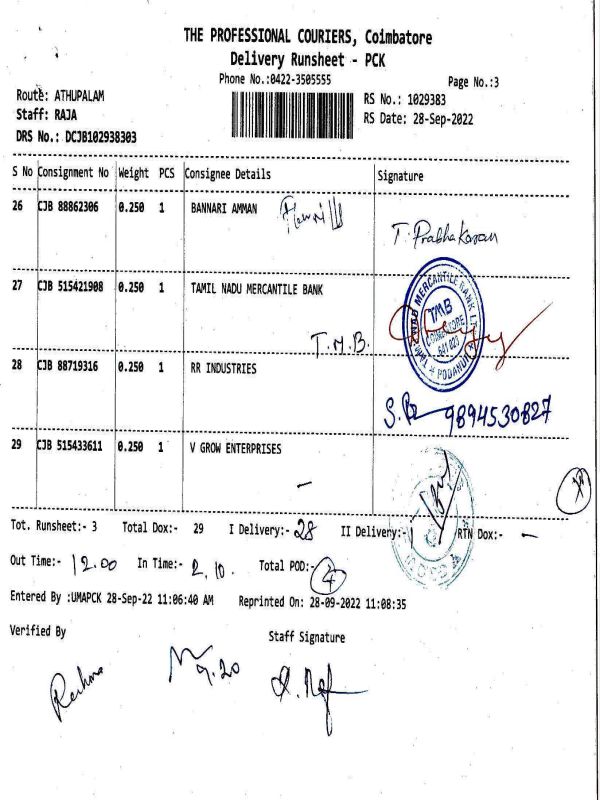 THE PROFESSIONAL COURIERS, Coimbatore
Delivery Runsheet - PCK
Phone No.:0422-3505555
Page No.:3
Route: ATHUPALAM
RS No.: 1029383
Staff: RAJA
RS Date: 28-Sep-2022
DRS No.: DCJB102938303
S No Consignment No Weight PCS Consignee Details Signature
26 CJB 88862306 0.250 1 BANNARI AMMAN
T. Prabhakaran
27 CJB 515421908 0.250 1 TAMIL NADU MERCANTILE BANK
T.M.B.
TAMILNAD MERCANTILE BANK LTD
TMB
COIMBATORE
641 023
PODANUR
28 CJB 88719316 0.250 1 RR INDUSTRIES
9894530827
29 CJB 515433611 0.250 1 V GROW ENTERPRISES
Tot. Runsheet:- 3 Total Dox:- 29 I Delivery:- 28 II Delivery:- 1 RTN Dox:- -
Out Time:- 12.00 In Time:- 2.10. Total POD:- 4
Entered By :UMAPCK 28-Sep-22 11:06:40 AM Reprinted On: 28-09-2022 11:08:35
Verified By
Staff Signature
9.20